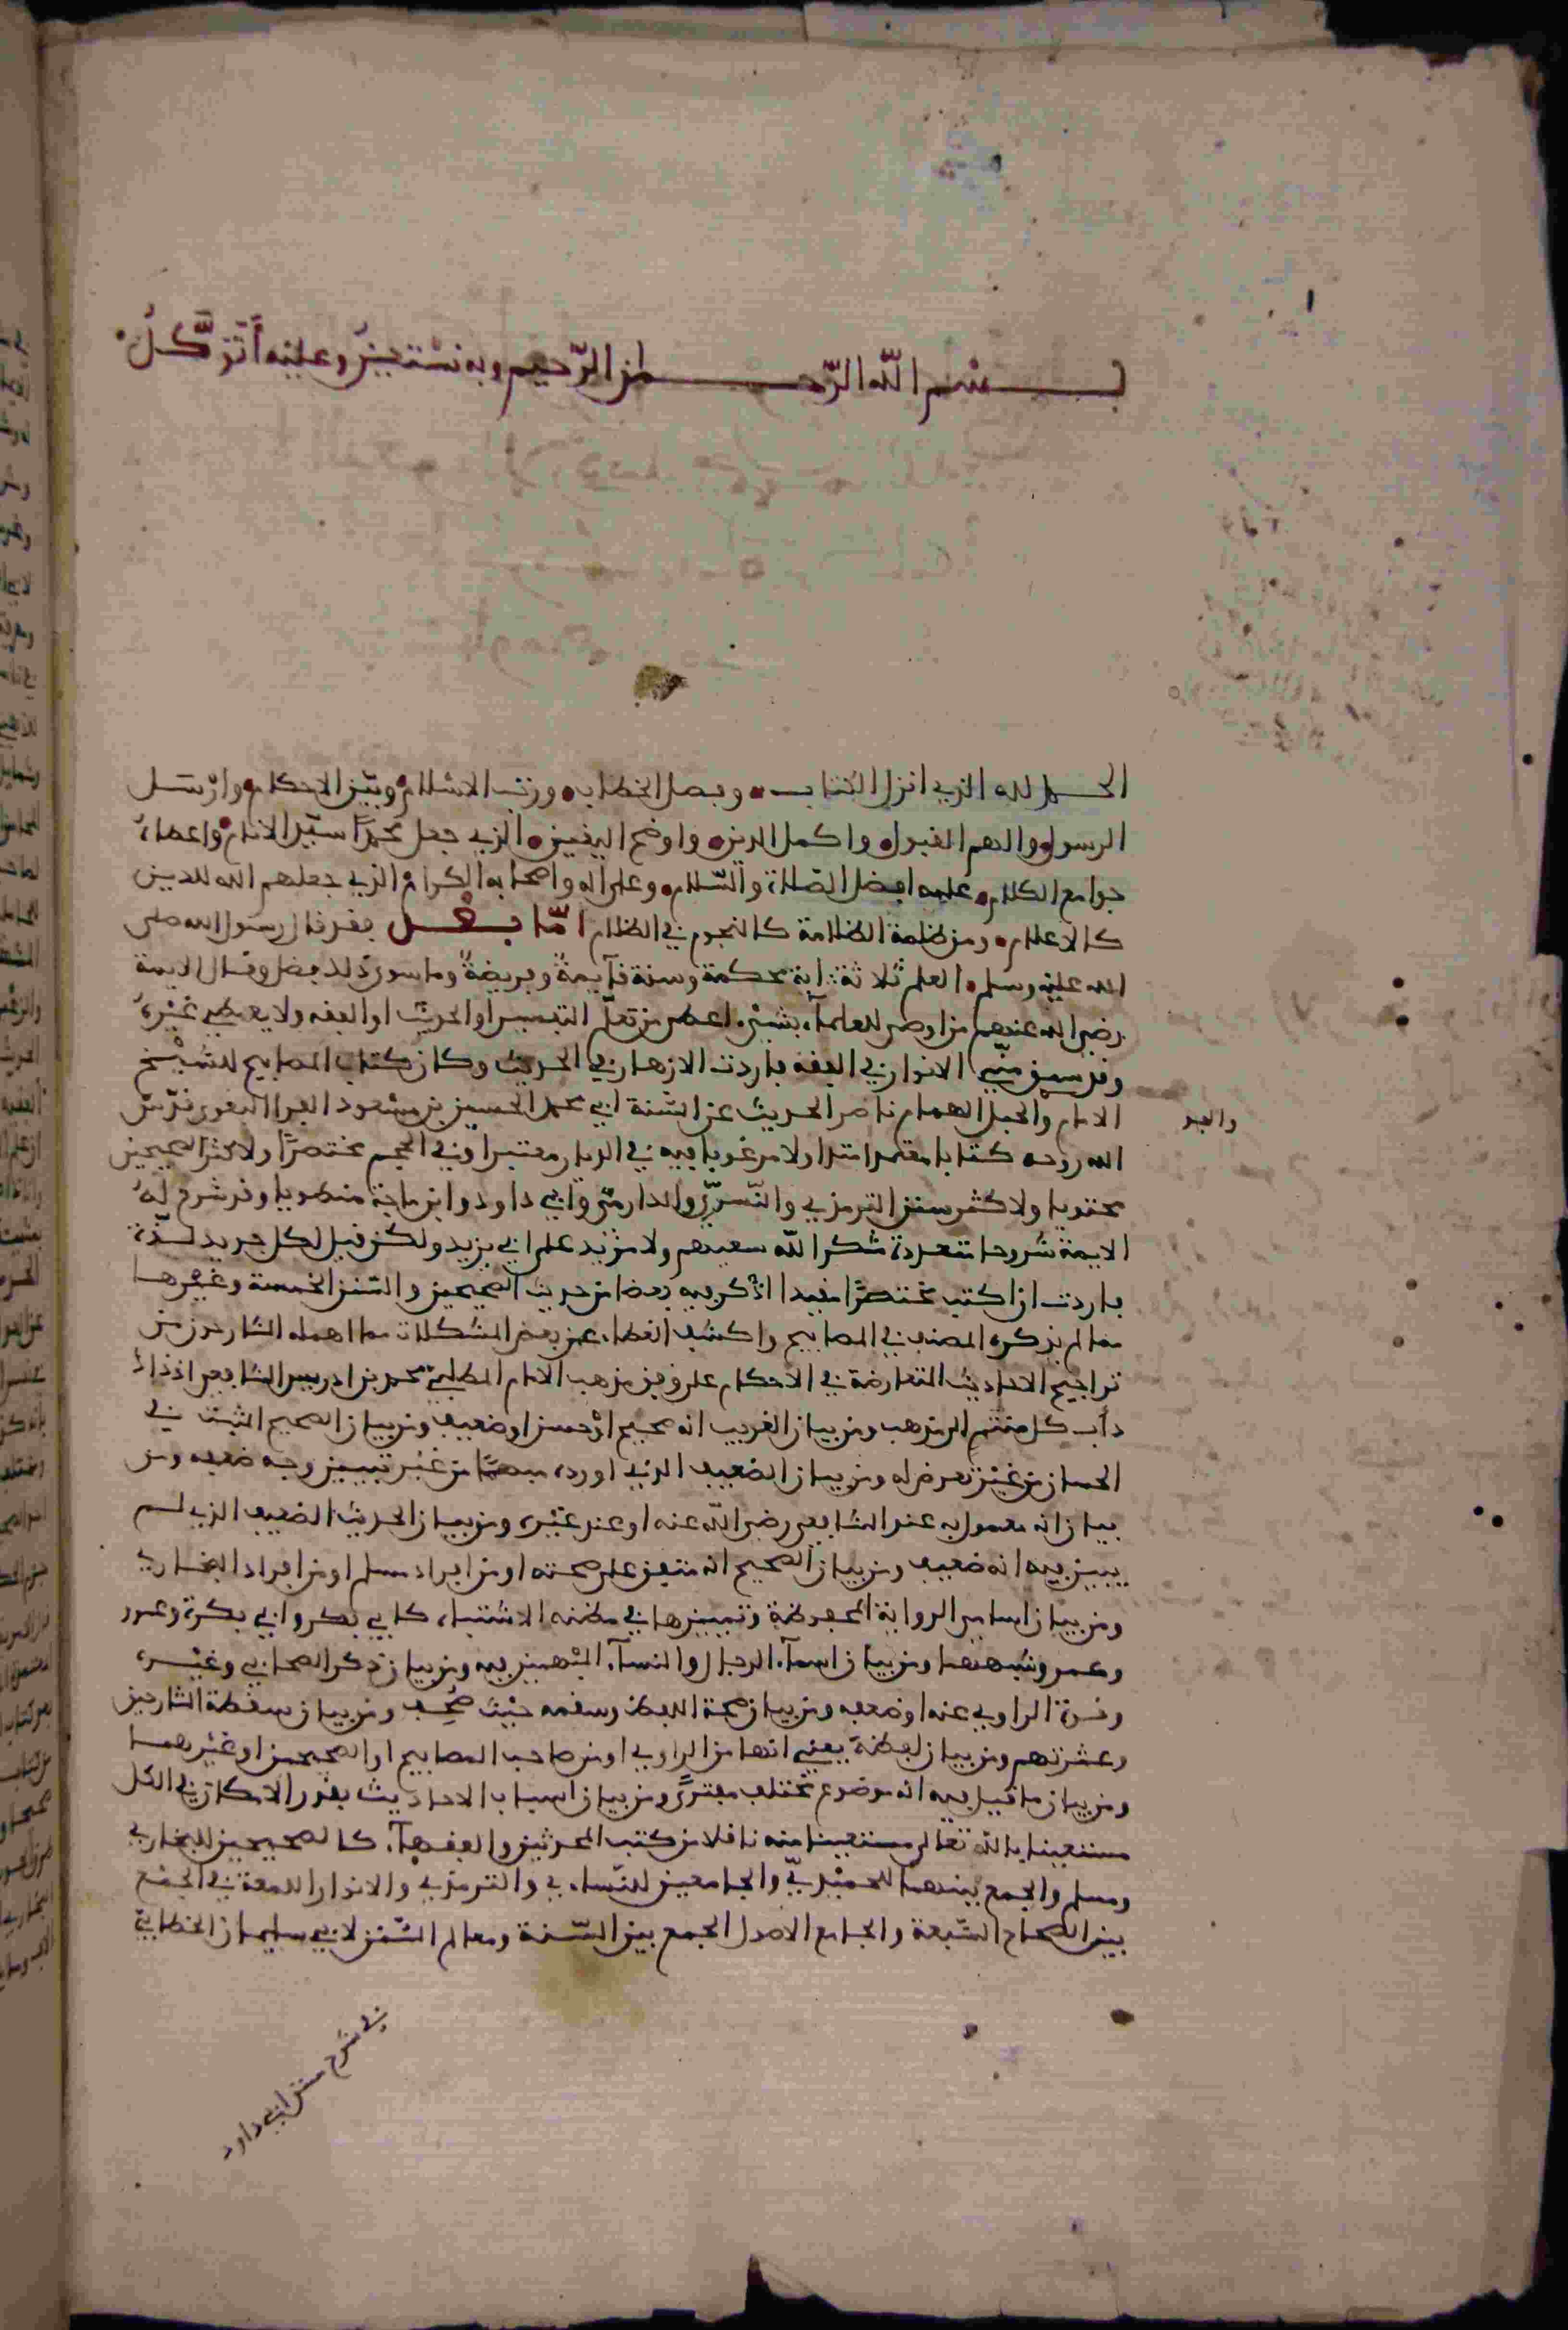 بسم الله الرحمن الرحيم وبه نستعين وعليه أتوكل
الحمد لله الذي انزل الكتاب وفصل الخطاب ورتب الاسلام وبين الاحكام وارسل
الرسول والهم القبول واكمل الدين واوضح اليقين الذي جعل محمدا سيد الانام واعطاه
جوامع الكلام عليه افضل الصلاة والسلام وعلى اله واصحابه الكرام الذي جعلهم الله للدين
كالاعلام ومن ظلمة الظلامة كالنجوم في الظلام امّا بعد فقد قال رسول الله صلى
الله عليه وسلم العلم ثلاثة اية محكمة وسنة قآيمة وفريضة وما سوى ذلك فضل وقال الايمة
رضي الله عنهم من اوصى للعلمآء بشيء اعطى من تعلّم التفسير او الحديث او الفقه ولا يعطى غيره
وقد سبق منّي الانوار في الفقه فاردت الازهار في الحديث وكان كتاب المصابيح للشيخ
الامام والحبر الهمام ناصر الحديث عن السّنة ابي محمد الحسين بن مسعود الفرا البغوي قدّس
والبحر
الله روحه كتابا معتمدا متداولا مرغوبا فيه في الديار معتبرا وفي الحجم مختصرا ولاكثر الصحيحين
محتويا ولاكثر سنن الترمذي والنسوي والدارمي وابي داود وابن ماجة منطويا وقد شرح له
الايمة شروحا متعددة شكر الله سعيهم ولا مزيد على ابي يزيد ولكن قيل لكل جديد لذّة
فاردت ان اكتب مختصرا مفيدا اذكر فيه بعضا من حديث الصحيحين والسنن الخمسة وغيرها
مما لم يذكره المصنف في المصابيح واكشف الغطاء عن بعض المشكلات مما اهمله الشارحون من
تراجيح الاحاديث المتعارضة في الاحكام على وفق مذهب الامام المطلبي محمد بن ادريس الشافعي اذ ذاك
دأب كل منتم الى مذهب ومن بيان الغريب انه صحيح او حسن او ضعيف ومن بيان الصحيح المثبت في
الحسان من غير تعرض له ومن بيان الضعيف الذي اورده مبهما من غير تبيين وجه ضعفه ومن
بيان انه معمول به عند الشافعي رضي الله عنه او عند غيره ومن بيان الحديث الضعيف الذي لم
يبين فيه انه ضعيف ومن بيان الصحيح انه متفق على صحته او من افراد مسلم او من افراد البخاري
ومن بيان اسامي الرواية المحفوظة وتمييزها في مظنه الاشتباه كابي بكر وابي بكرة وعمر
وعمرو وشبههما ومن بيان اسمآء الرجال والنسآء المبهمين فيه ومن بيان ذكر الصحابي وغيره
وقوة الراوي عنه او ضعفه ومن بيان صحة اللفظ وسقمه حيث صُحّف ومن بيان سقطة الشارحين
وعثرتهم ومن بيان لفظة يعني انها من الراوي او من صاحب المصابيح او الصحيحين او غيرهما
ومن بيان ما قيل فيه انه موضوع مختلف مفترى ومن بيان اسباب الاحاديث بقدر الامكان في الكل
مستعينا بالله تعالى مستعينا منه ناقلا من كتب المحدثين والفقهآء كالصحيحين للبخاري
ومسلم والجمع بينهما للحميدي والجامعين للنساءي والترمذي والانوار اللمعة في الجمع
بين الصحاح السبعة والجامع الاصول الجمع بين الستة ومعالم السنن لابي سليمان الخطابي
في شرح سنن ابي داود